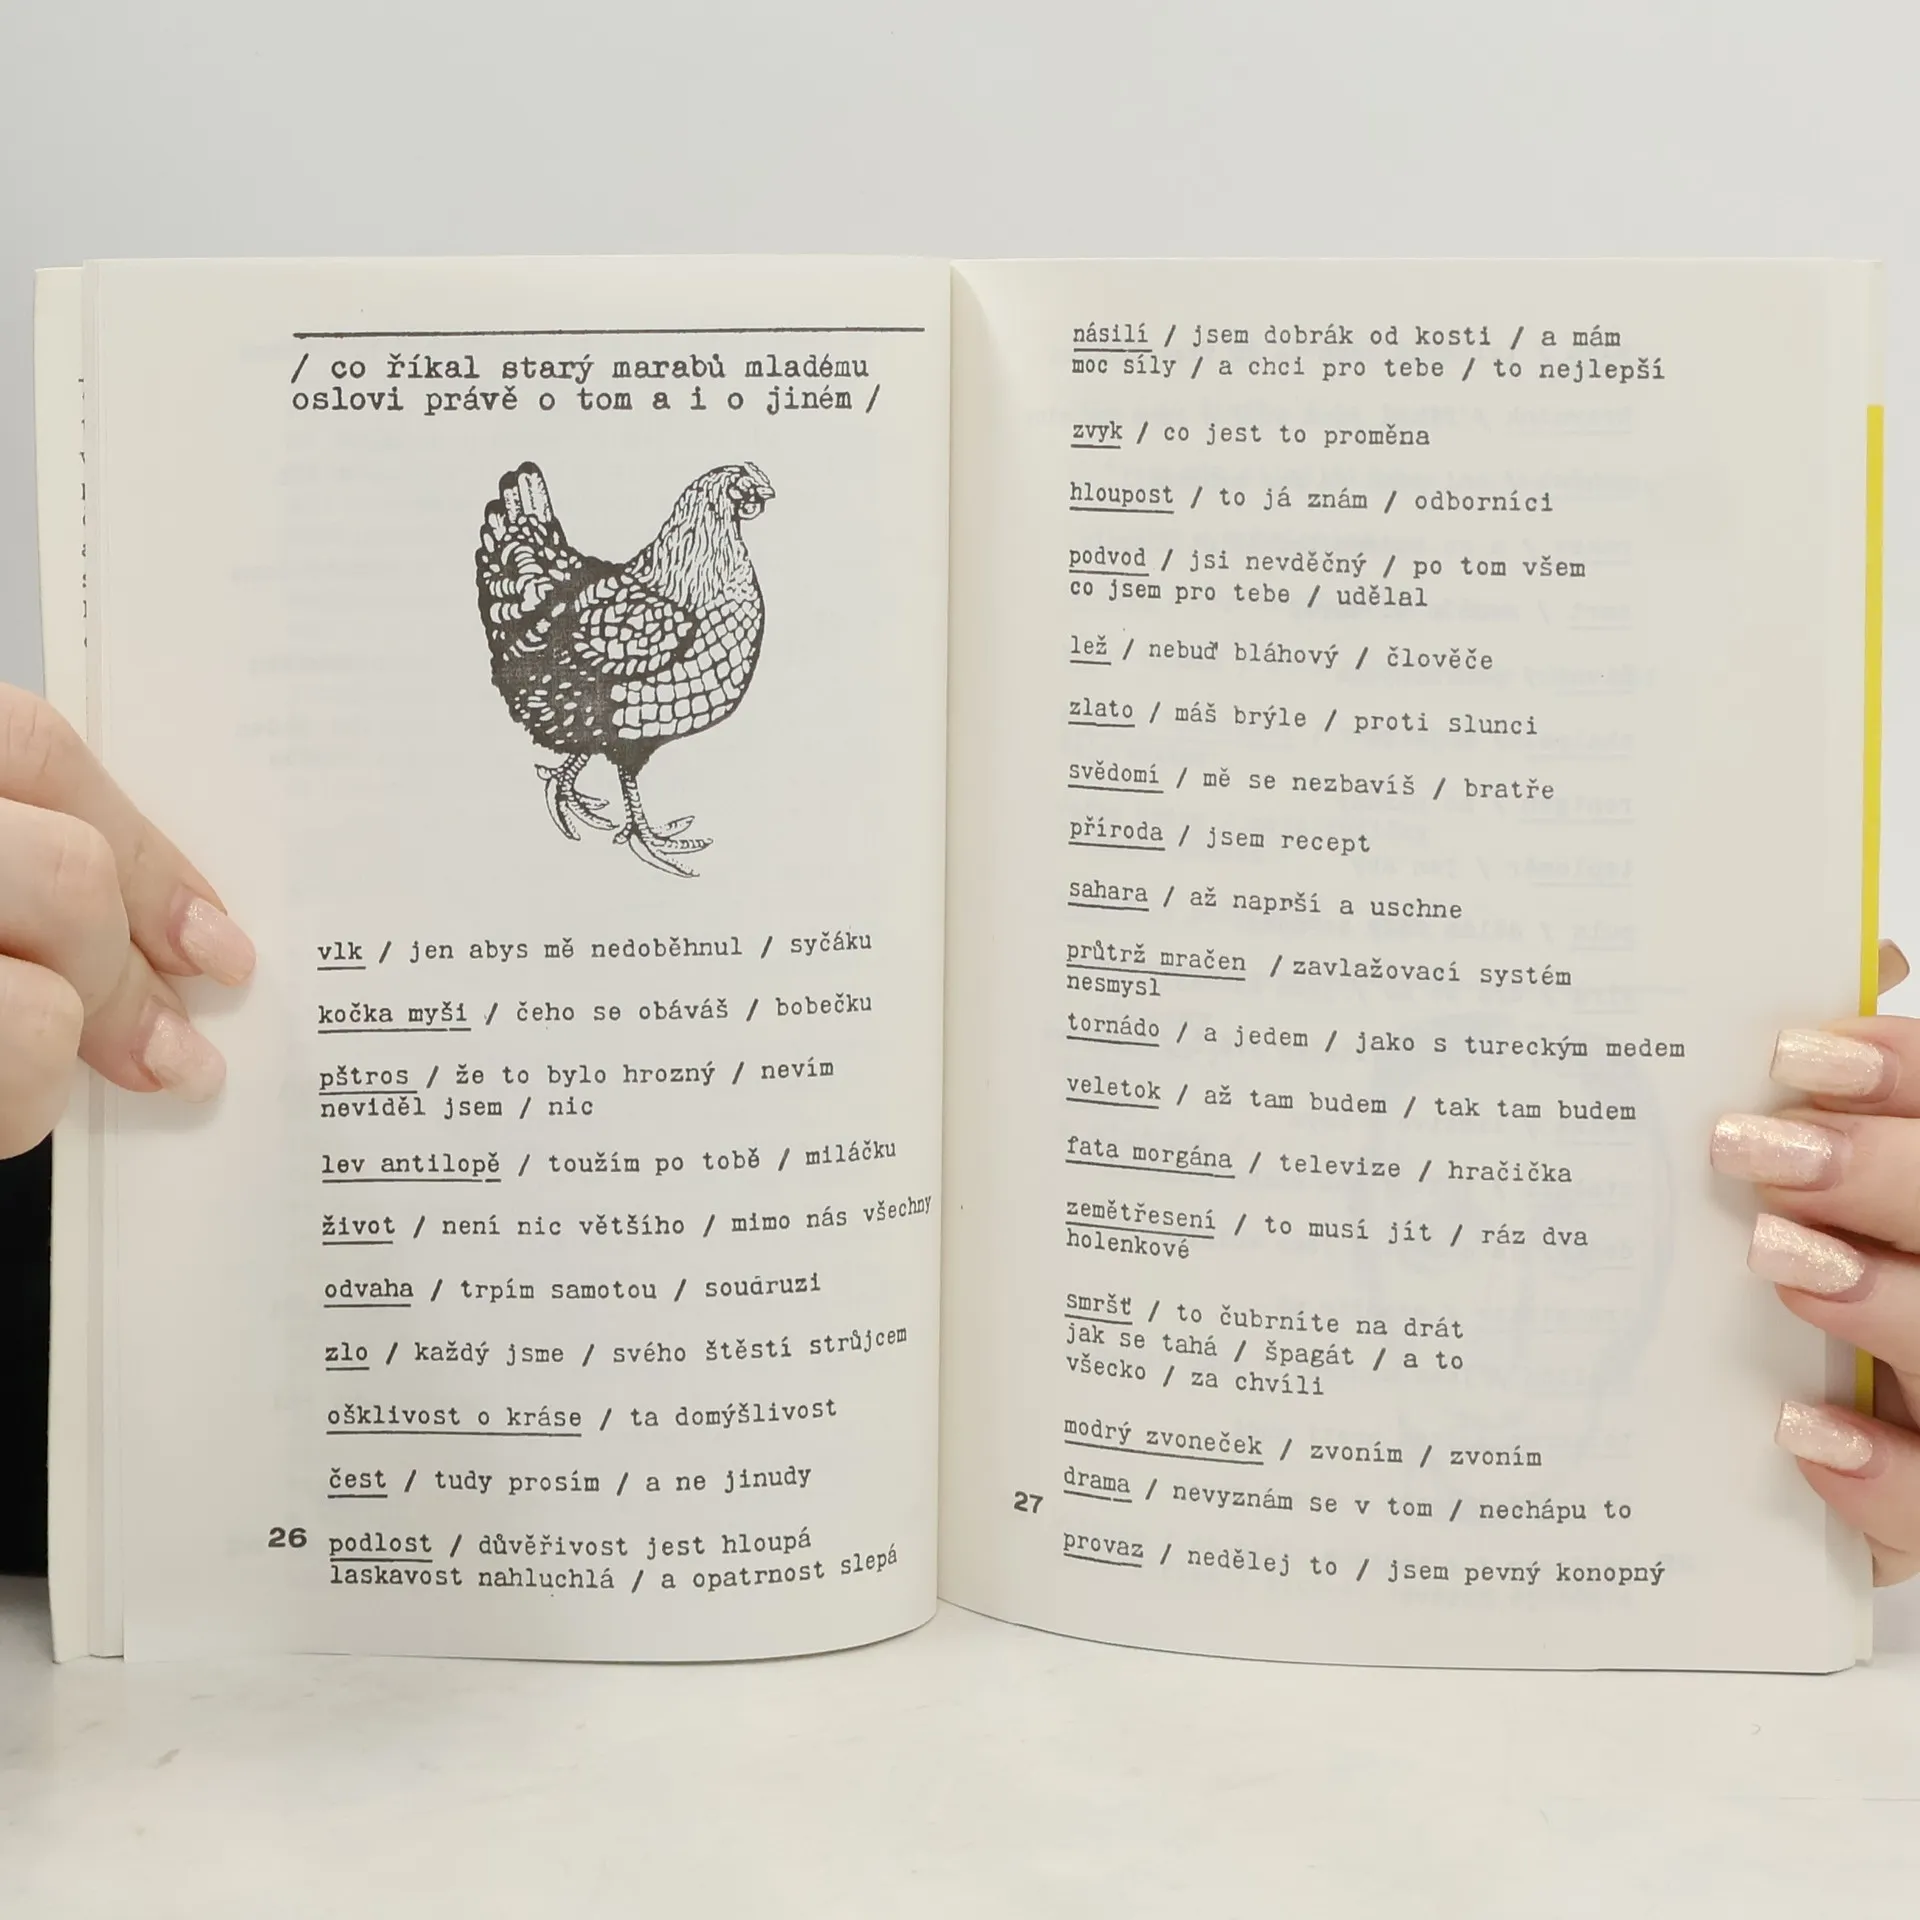 / co říkal starý marabů mladému
oslovi právě o tom a i o jiném /
vlk / jen abys mě nedoběhnul / syčáku
kočka myši / čeho se obáváš / bobečku
pštros / že to bylo hrozný / nevím
neviděl jsem / nic
lev antilopě / toužím po tobě / miláčku
život / není nic většího / mimo nás všechny
odvaha / trpím samotou / soudruzi
zlo / každý jsme / svého štěstí strůjcem
ošklivost o kráse / ta domýšlivost
čest / tudy prosím / a ne jinudy
26 podlost / důvěřivost jest hloupá
laskavost nahluchlá / a opatrnost slepá
násilí / jsem dobrák od kosti / a mám
moc síly / a chci pro tebe / to nejlepší
zvyk / co jest to proměna
hloupost / to já znám / odborníci
podvod / jsi nevděčný / po tom všem
co jsem pro tebe / udělal
lež / nebuď bláhový / člověče
zlato / máš brýle / proti slunci
svědomí / mě se nezbavíš / bratře
příroda / jsem recept
sahara / až naprší a uschne
průtrž mračen / zavlažovací systém
nesmysl
tornádo / a jedem / jako s tureckým medem
veletok / až tam budem / tak tam budem
fata morgána / televize / hračička
zemětřesení / to musí jít / ráz dva
holenkové
smršť / to čubrníte na drát
jak se tahá / špagát / a to
všecko / za chvíli
modrý zvoneček / zvoním / zvoním
27 drama / nevyznám se v tom / nechápu to
provaz / nedělej to / jsem pevný konopný